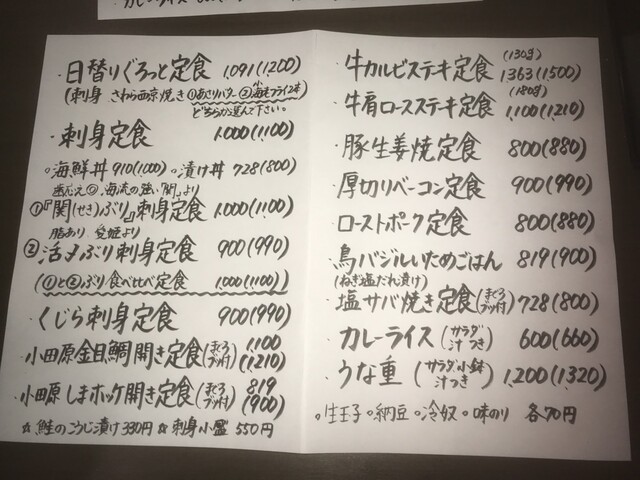 ・日替りぐろっと定食 1,091(1,200)
(刺身 さわら西京焼き ①あさりバター ②海老フライ2本
どちらか選んで下さい。
・刺身定食 1,000(1,100)
。海鮮丼 910(1,000) 。漬け丼 728(800)
歯ごたえ◎、海流の強い「関」より
①『関(せき)ぶり』刺身定食 1,000(1,100)
脂あり 愛媛より
②活〆ぶり刺身定食 900(990)
(①と②ぶり食べ比べ定食 1,000(1,100))
・くじら刺身定食 900(990)
・小田原金目鯛開き定食(まぐろブツ付) 1,100(1,210)
・小田原しまホッケ開き定食(まぐろブツ付) 819(900)
☆鮭のこうじ漬け 330円 ☆刺身小盛 550円
(130g)
・牛カルビステキ定食 1,363(1,500)
(180g)
・牛肩ロースステキ定食 1,100(1,210)
・豚生姜焼定食 800(880)
・厚切りベーコン定食 900(990)
・ローストポーク定食 800(880)
・鳥バジルいためごはん 819(900)
(ねぎ塩だれ漬け)
・塩サバ焼き定食(まぐろブツ付) 728(800)
・カレーライス(サラダ汁つき) 600(660)
・うな重(サラダ小鉢汁つき) 1,200(1,320)
。生玉子 。納豆 。冷奴 。味のり 各70円